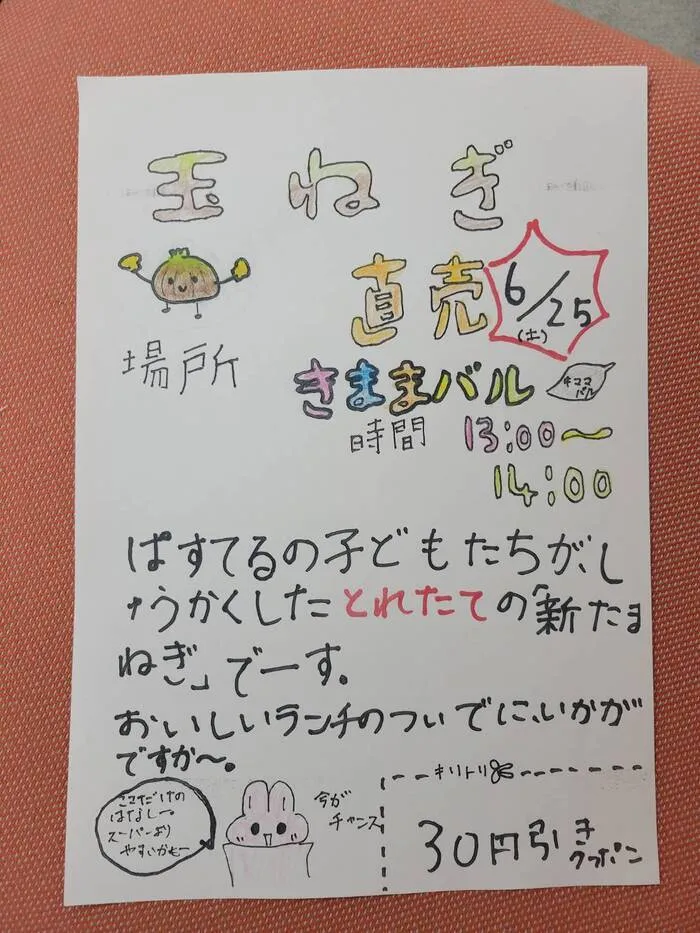 玉ねぎ
直売
6/25
(土)
場所
きままバル
キママ
バル
時間 13:00〜
14:00
ぱすてるの子どもたちが、し
ゅうかくしたとれたての「新たま
ねぎ」でーす。
おいしいランチのついでに、いかが
ですか〜。
ここだけの
はなしー
スーパーより
やすいかもー
今が
チャンス
キリトリ
30円引き
クーポン